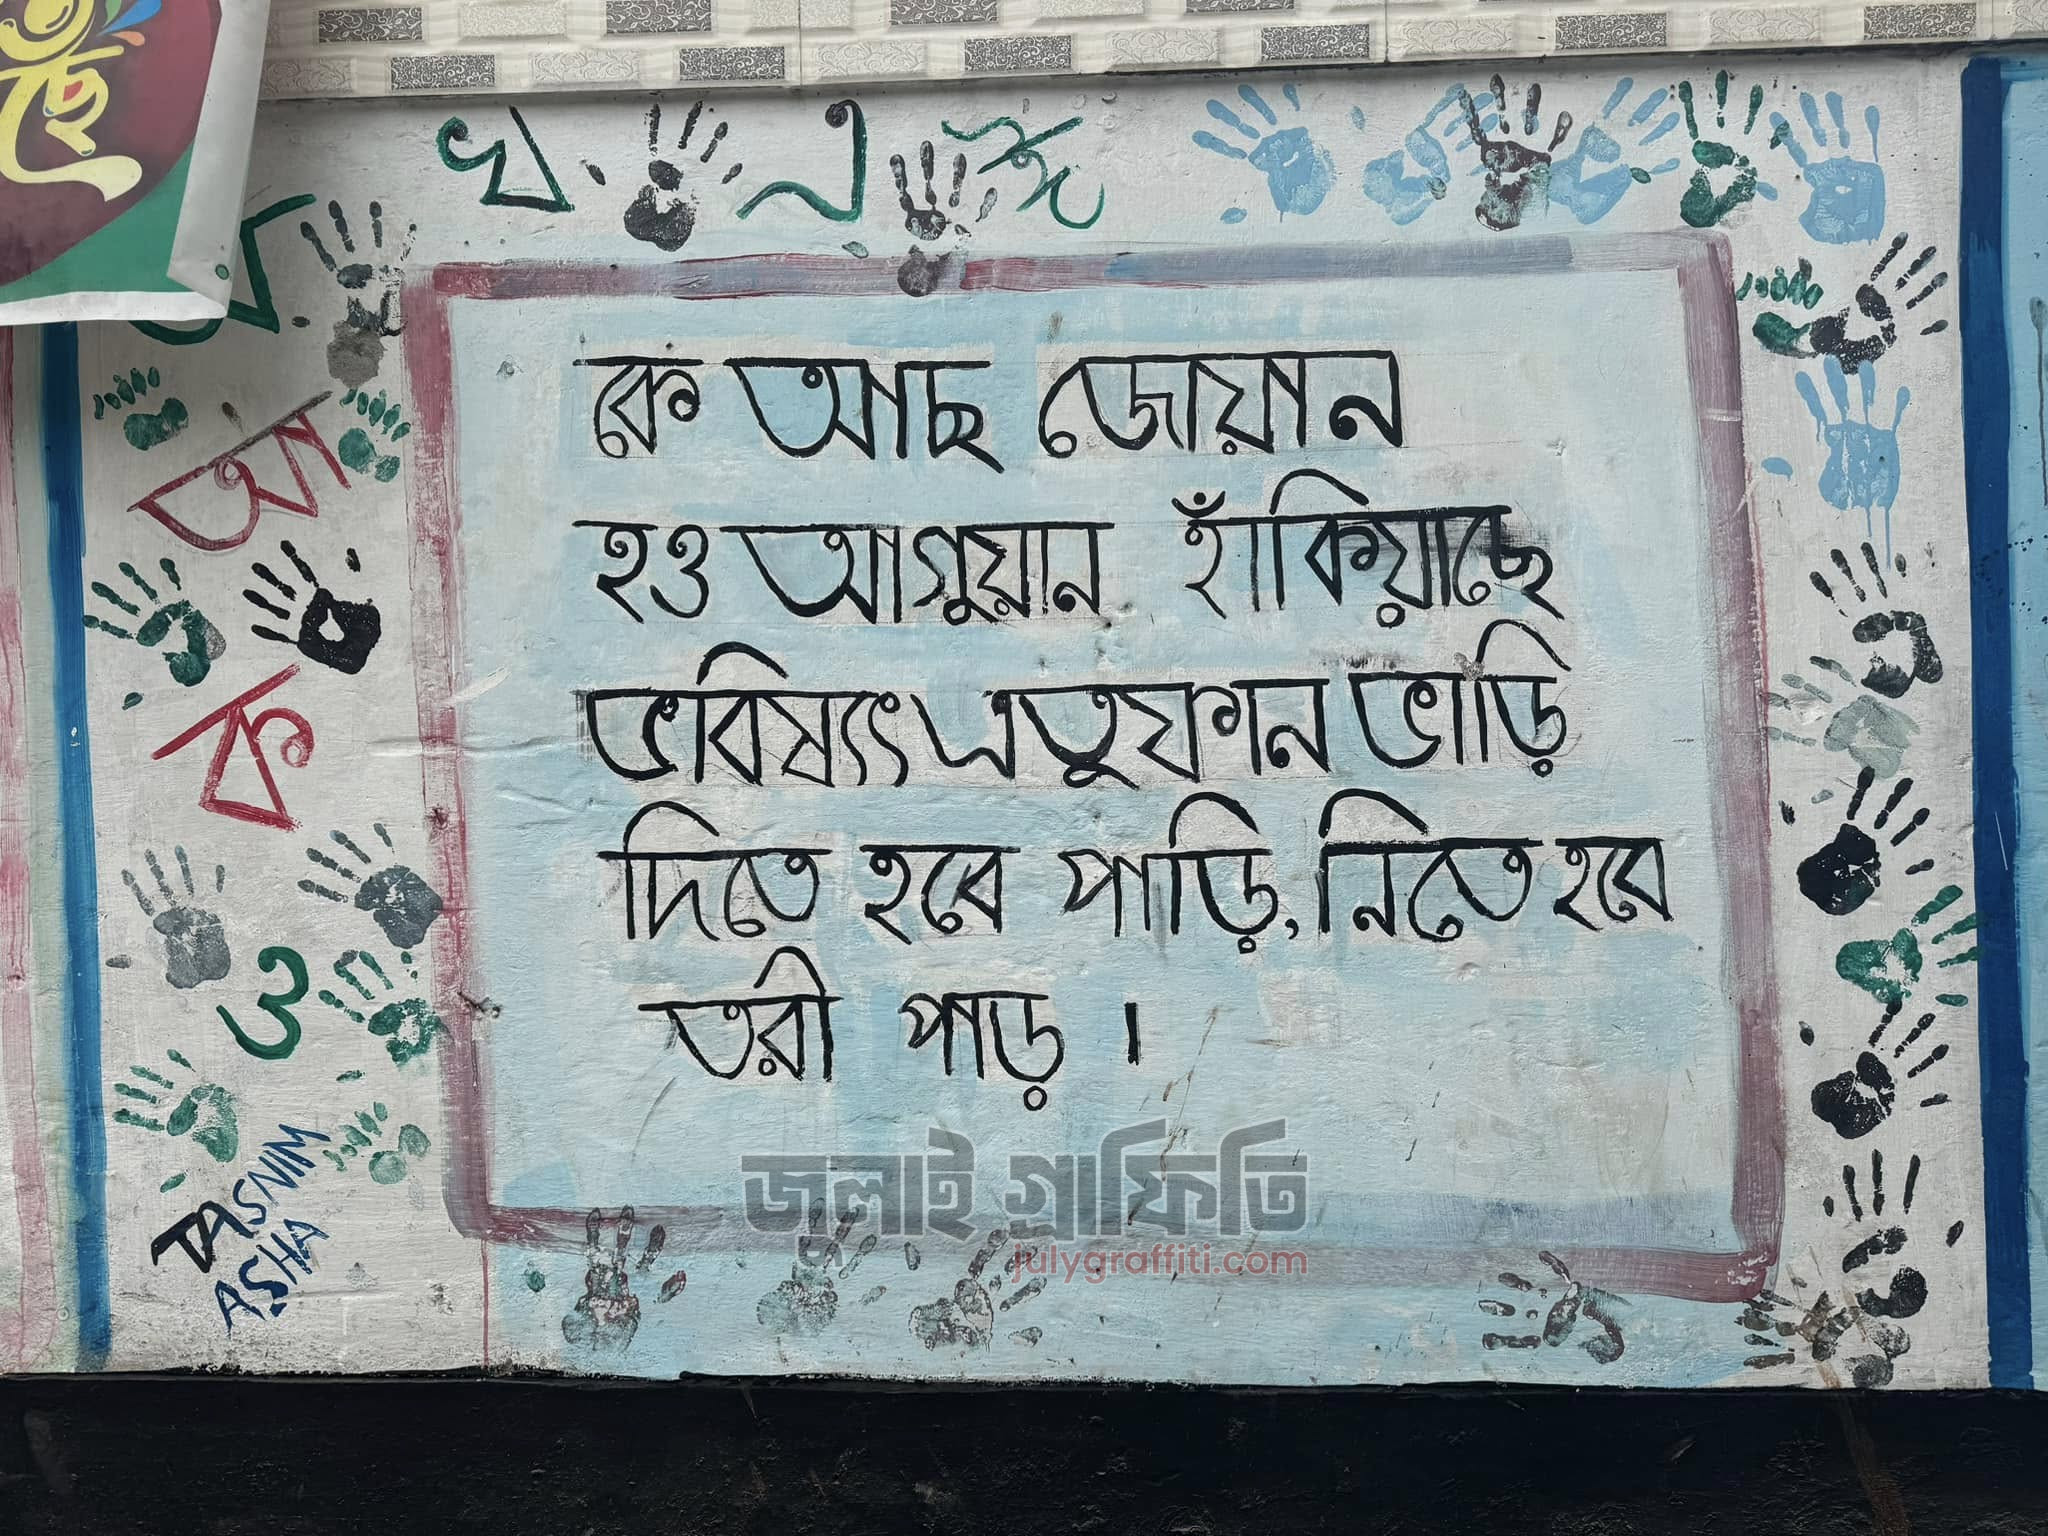 ছে
খ এ ঈ
আ
ক
ও
কে আছ জোয়ান
হও আগুয়ান হাঁকিয়াছে
ভবিষ্যৎ এতুফান ভাড়ি
দিতে হবে পাড়ি, নিতে হবে
তরী পাড় ।
TASNIM
ASHA
জুলাই গ্রাফিতি
julygraffiti.com